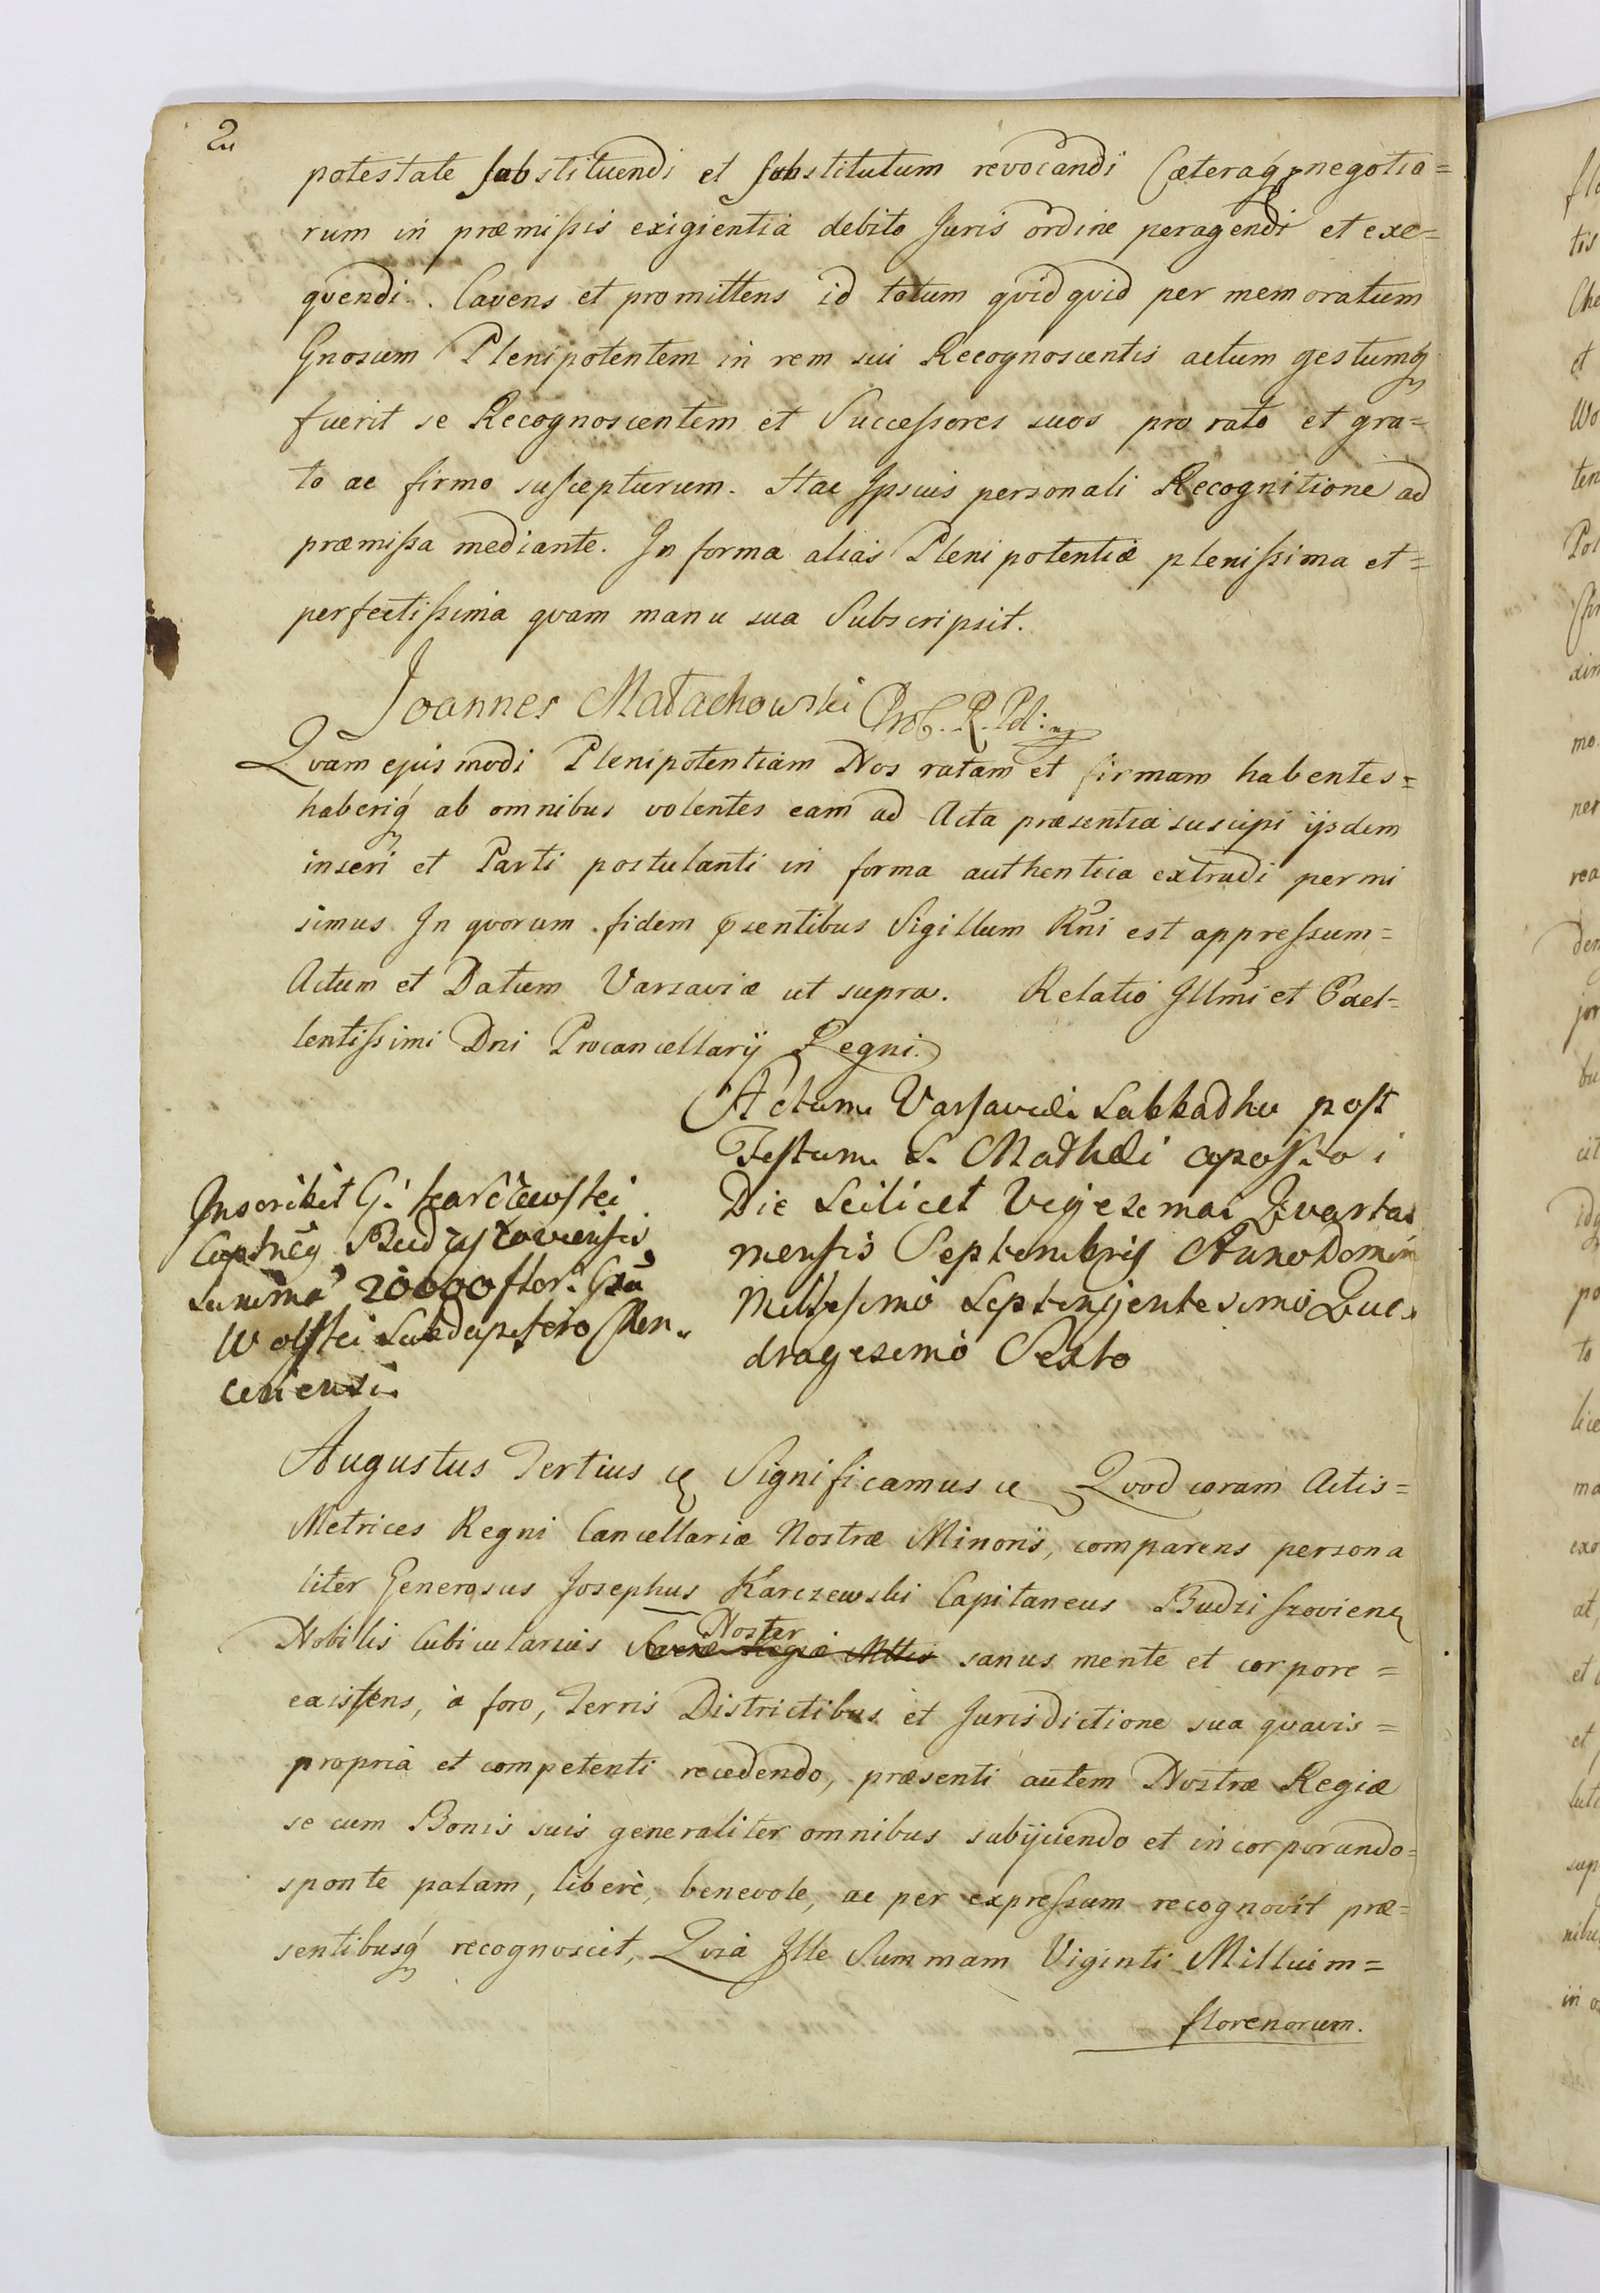 2
potestate substituendi et substitutum revocandi Cæteraq́ negotio=
rum in præmissis exigientia debito Juris ordine peragendi et exe=
qvendi. Cavens et promittens id totum qvidqvid per memoratum
Gnosum Plenipotentem in rem sui Recognoscentis actum gestumq́
fuerit se Recognoscentem et Successores suos pro rato et gra=
to ac firmo suscepturum. Hac Ipsius personali Recognitione ad
præmissa mediante. In forma alias Plenipotentiæ plenissima et=
perfectissima qvam manu sua Subscripsit.
Joannes Małachowski
Qvam ejusmodi Plenipotentiam Nos ratam et firmam habentes=
haberiq́ ab omnibus volentes eam ad Acta præsentia suscipi ijsdem
inseri et Parti postulanti in forma authentica extradi permi
simus In qvorum fidem pſentibus Sigillum Rñi est appressum=
Actum et Datum Varsaviæ ut supra. Relatio Illmi et Excel=
lentissimi Dni Procancellarij Regni.
Actum Varsaviæ Sabbatho post
Festum S. Mathæi
Die Scilicet Vigesima Qvarta
mensis Septembris Anno Domini
Millesimo Septingentesimo Qua
dragesimo Sexto
Inscribit G. Karczewski
Captneg Budzyszoviensis
Summã 20000 flor.
Wolski
cenensi.
Augustus Tertius Significamus Qvod coram Actis=
Metrices Regni Cancellariæ Nostræ Minoris, comparens persona
liter Generosus Josephus Karczewski Capitaneus Budziszovien
Noster
Nobilis Cubicularius Sacræ Regiæ Mttis sanus mente et corpore=
existens, à foro, Terris Districtibus et Jurisdictione sua qvavis=
propria et competenti recedendo, præsenti autem Nostræ Regiæ
se cum Bonis suis generaliter omnibus subijciendo et incorporando=
sponte palam, liberè, benevole, ac per expressum recognovit præ=
sentibusq́ recognoscit, Qvia Ille Summam Viginti Millium=
florenorum.